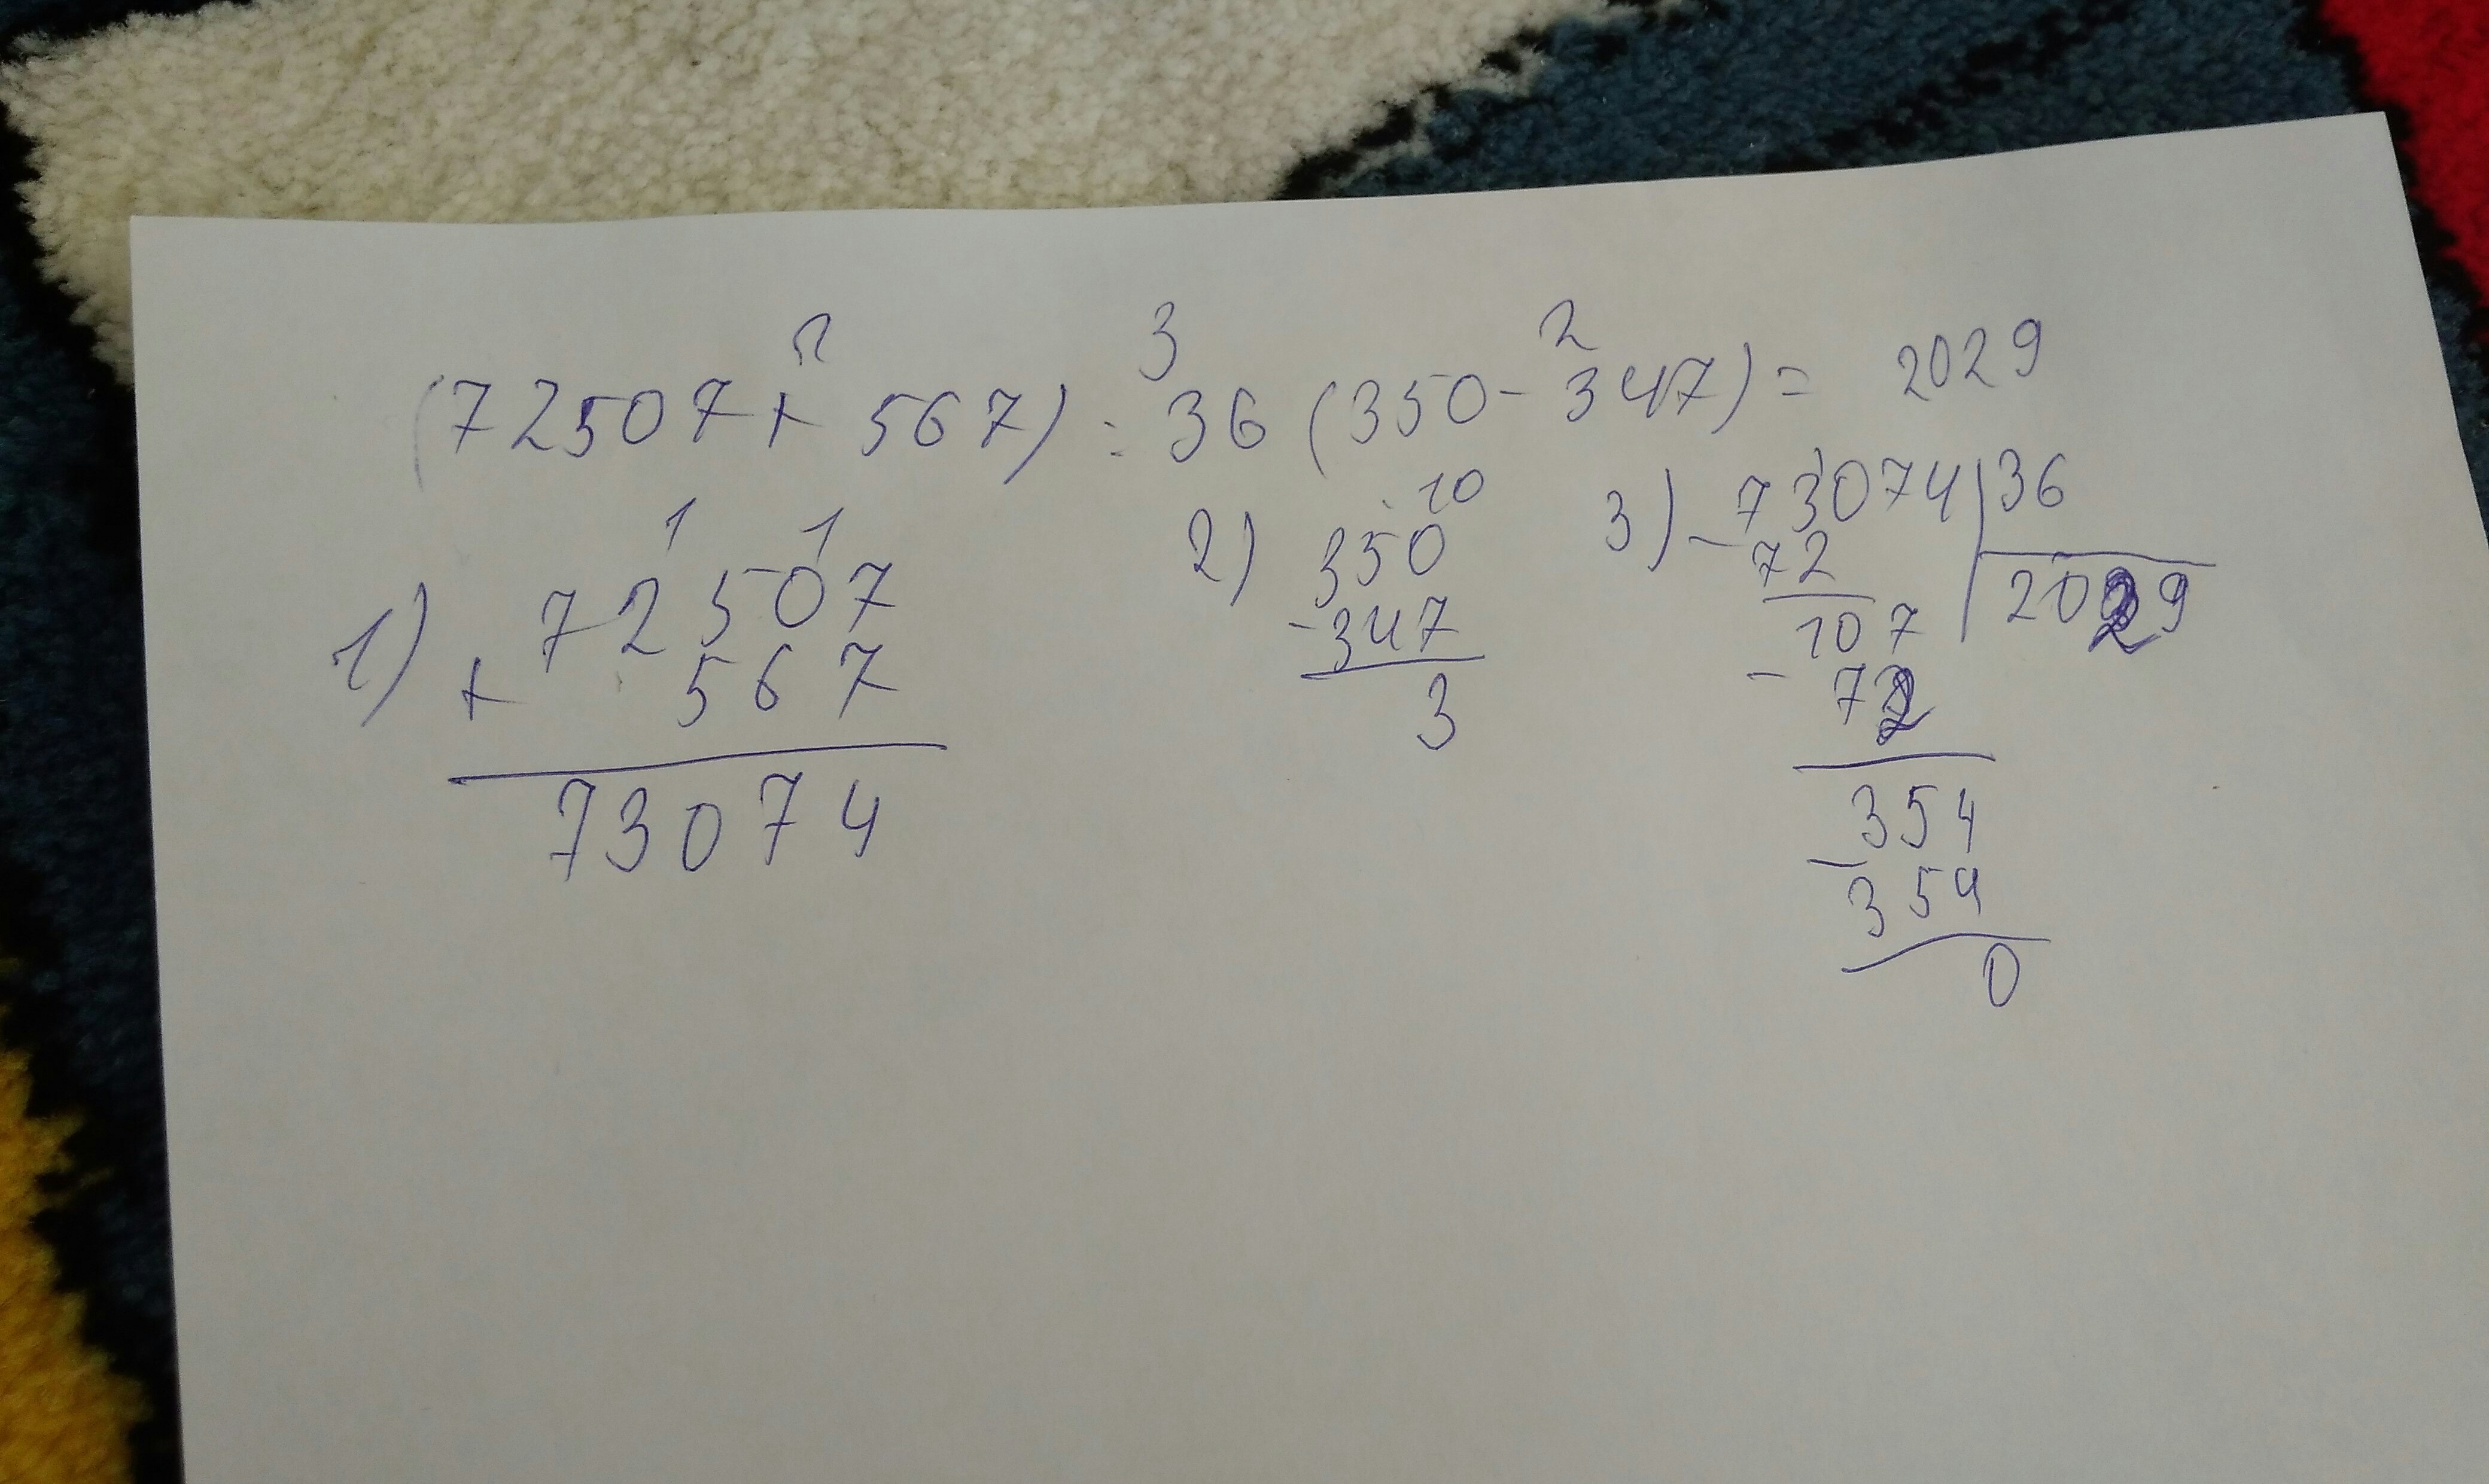 2 3 2
(72507+ 567) : 36 (350-347) = 2029
1) 1 1
72507
+ 567
73074
2) 10
350
-347
3
3) -73074 | 36
72 2029
107
- 72
354
-354
0